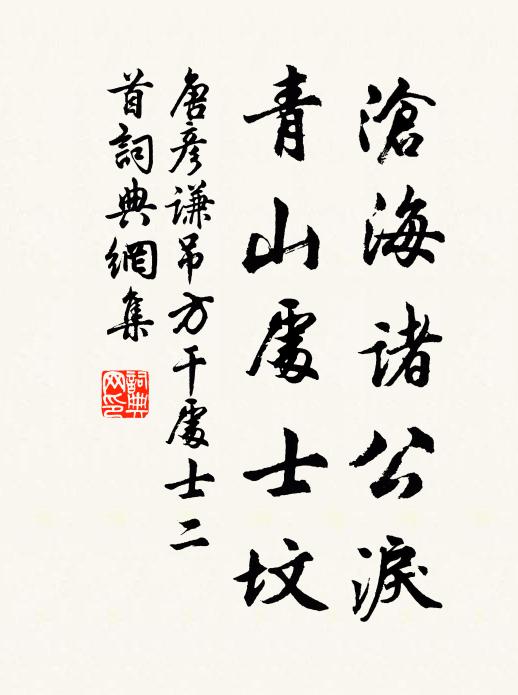 滄海諸公淚
青山處士墳
唐彥謙吊方干處士二
首詞典網集
詞典
网印